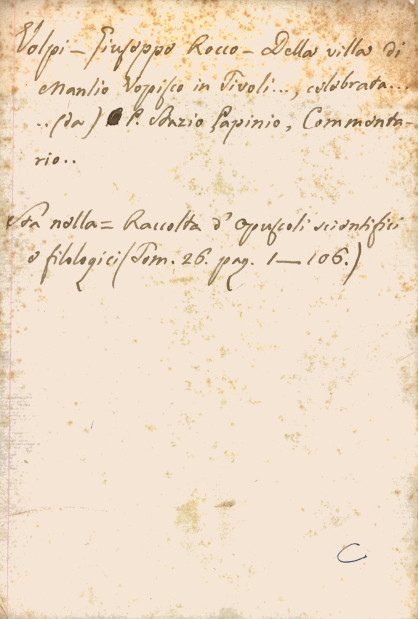 Volpi - Giuseppe Rocco - Della villa di
Manlio Vopisco in Tivoli..., celebrata...
..(da) P. Stazio Papinio, Commenta-
rio..
Sta nella = Raccolta d'opuscoli scientifici
e filologici (Tom. 26. pag. 1-106.)
C